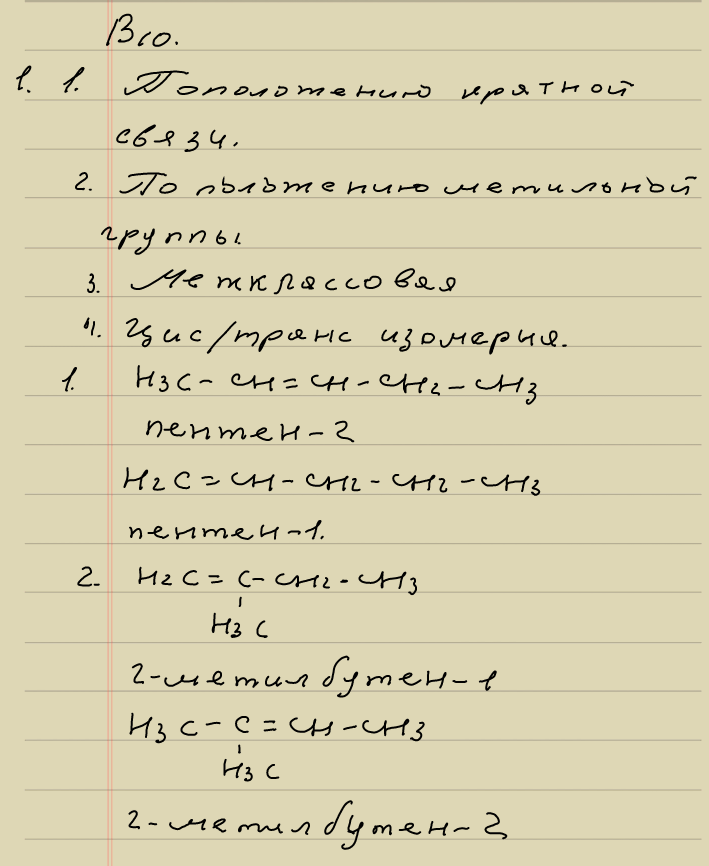 В10.
1. 1. По положению кратной
связи.
2. По пъльжению метильной
группы.
3. Межклассовая
4. Цис/транс изомерия.
1. H3C - CH = CH - CH2 - CH3
пентен - 2
H2C = CH - CH2 - CH2 - CH3
пентен - 1.
2. H2C = C - CH2 - CH3
H3C
2-метил бутен - 1
H3C - C = CH - CH3
H3C
2-метил бутен - 2